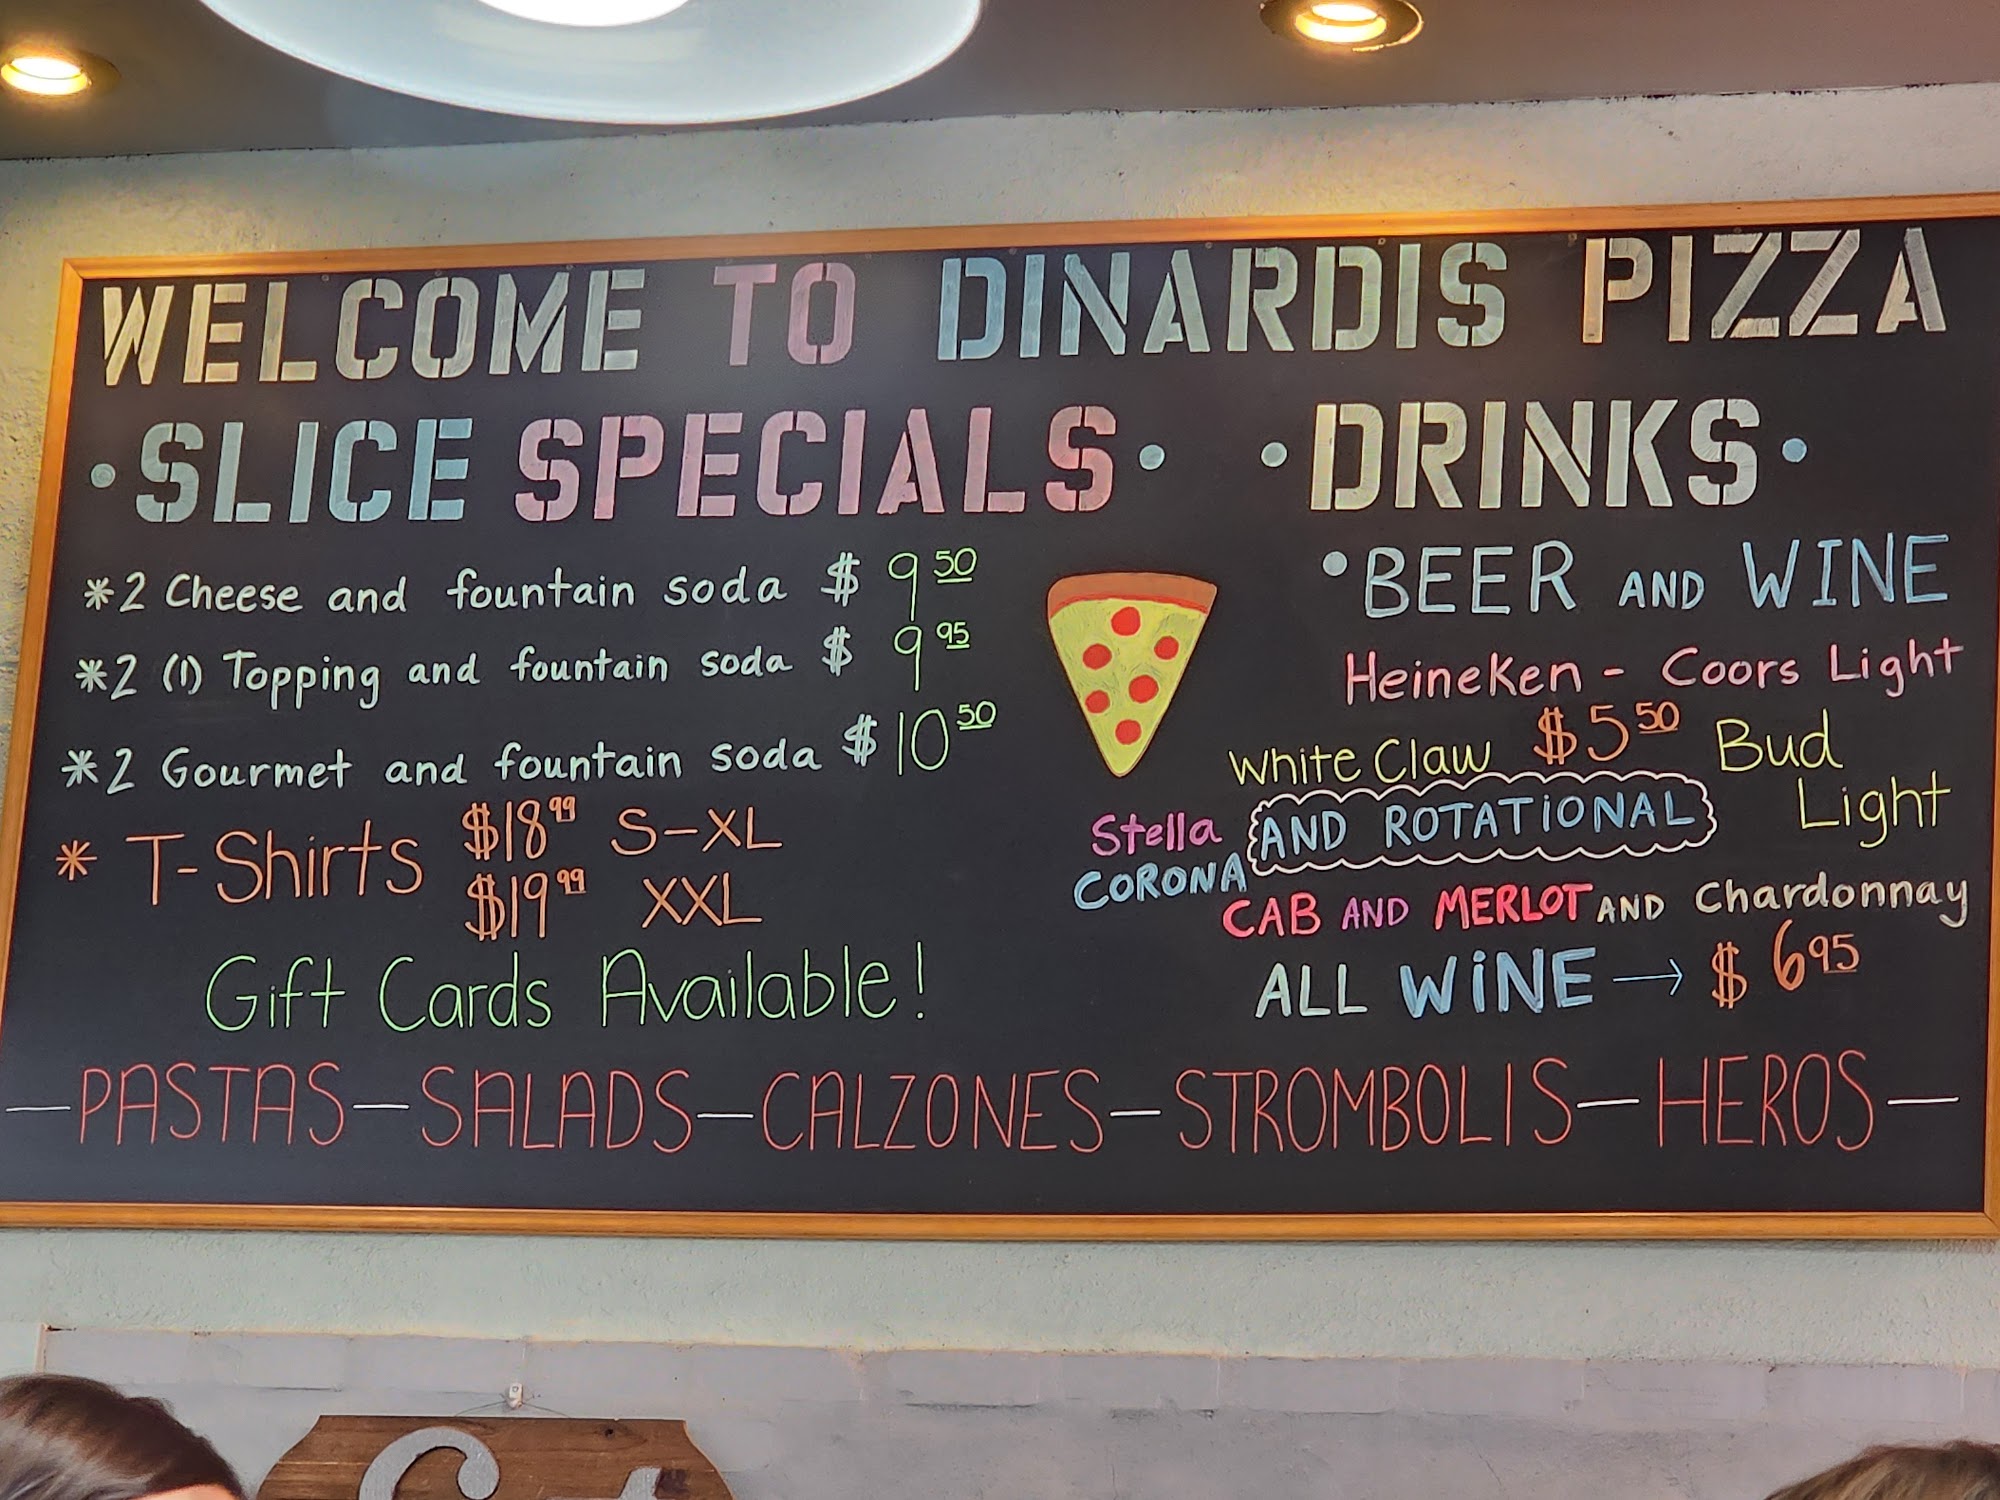 WELCOME TO DINARDIS PIZZA
• SLICE SPECIALS •
* 2 Cheese and fountain soda $ 9 50
* 2 (1) Topping and fountain soda $ 9 95
* 2 Gourmet and fountain soda $ 10 50
* T-Shirts $18 99 S-XL
$19 99 XXL
Gift Cards Available!
• DRINKS •
• BEER AND WINE
Heineken - Coors Light
White Claw $5 50 Bud
Light
Stella AND ROTATIONAL
CORONA
CAB AND MERLOT AND Chardonnay
ALL WINE → $ 6 95
— PASTAS — SALADS — CALZONES — STROMBOLIS — HEROS —